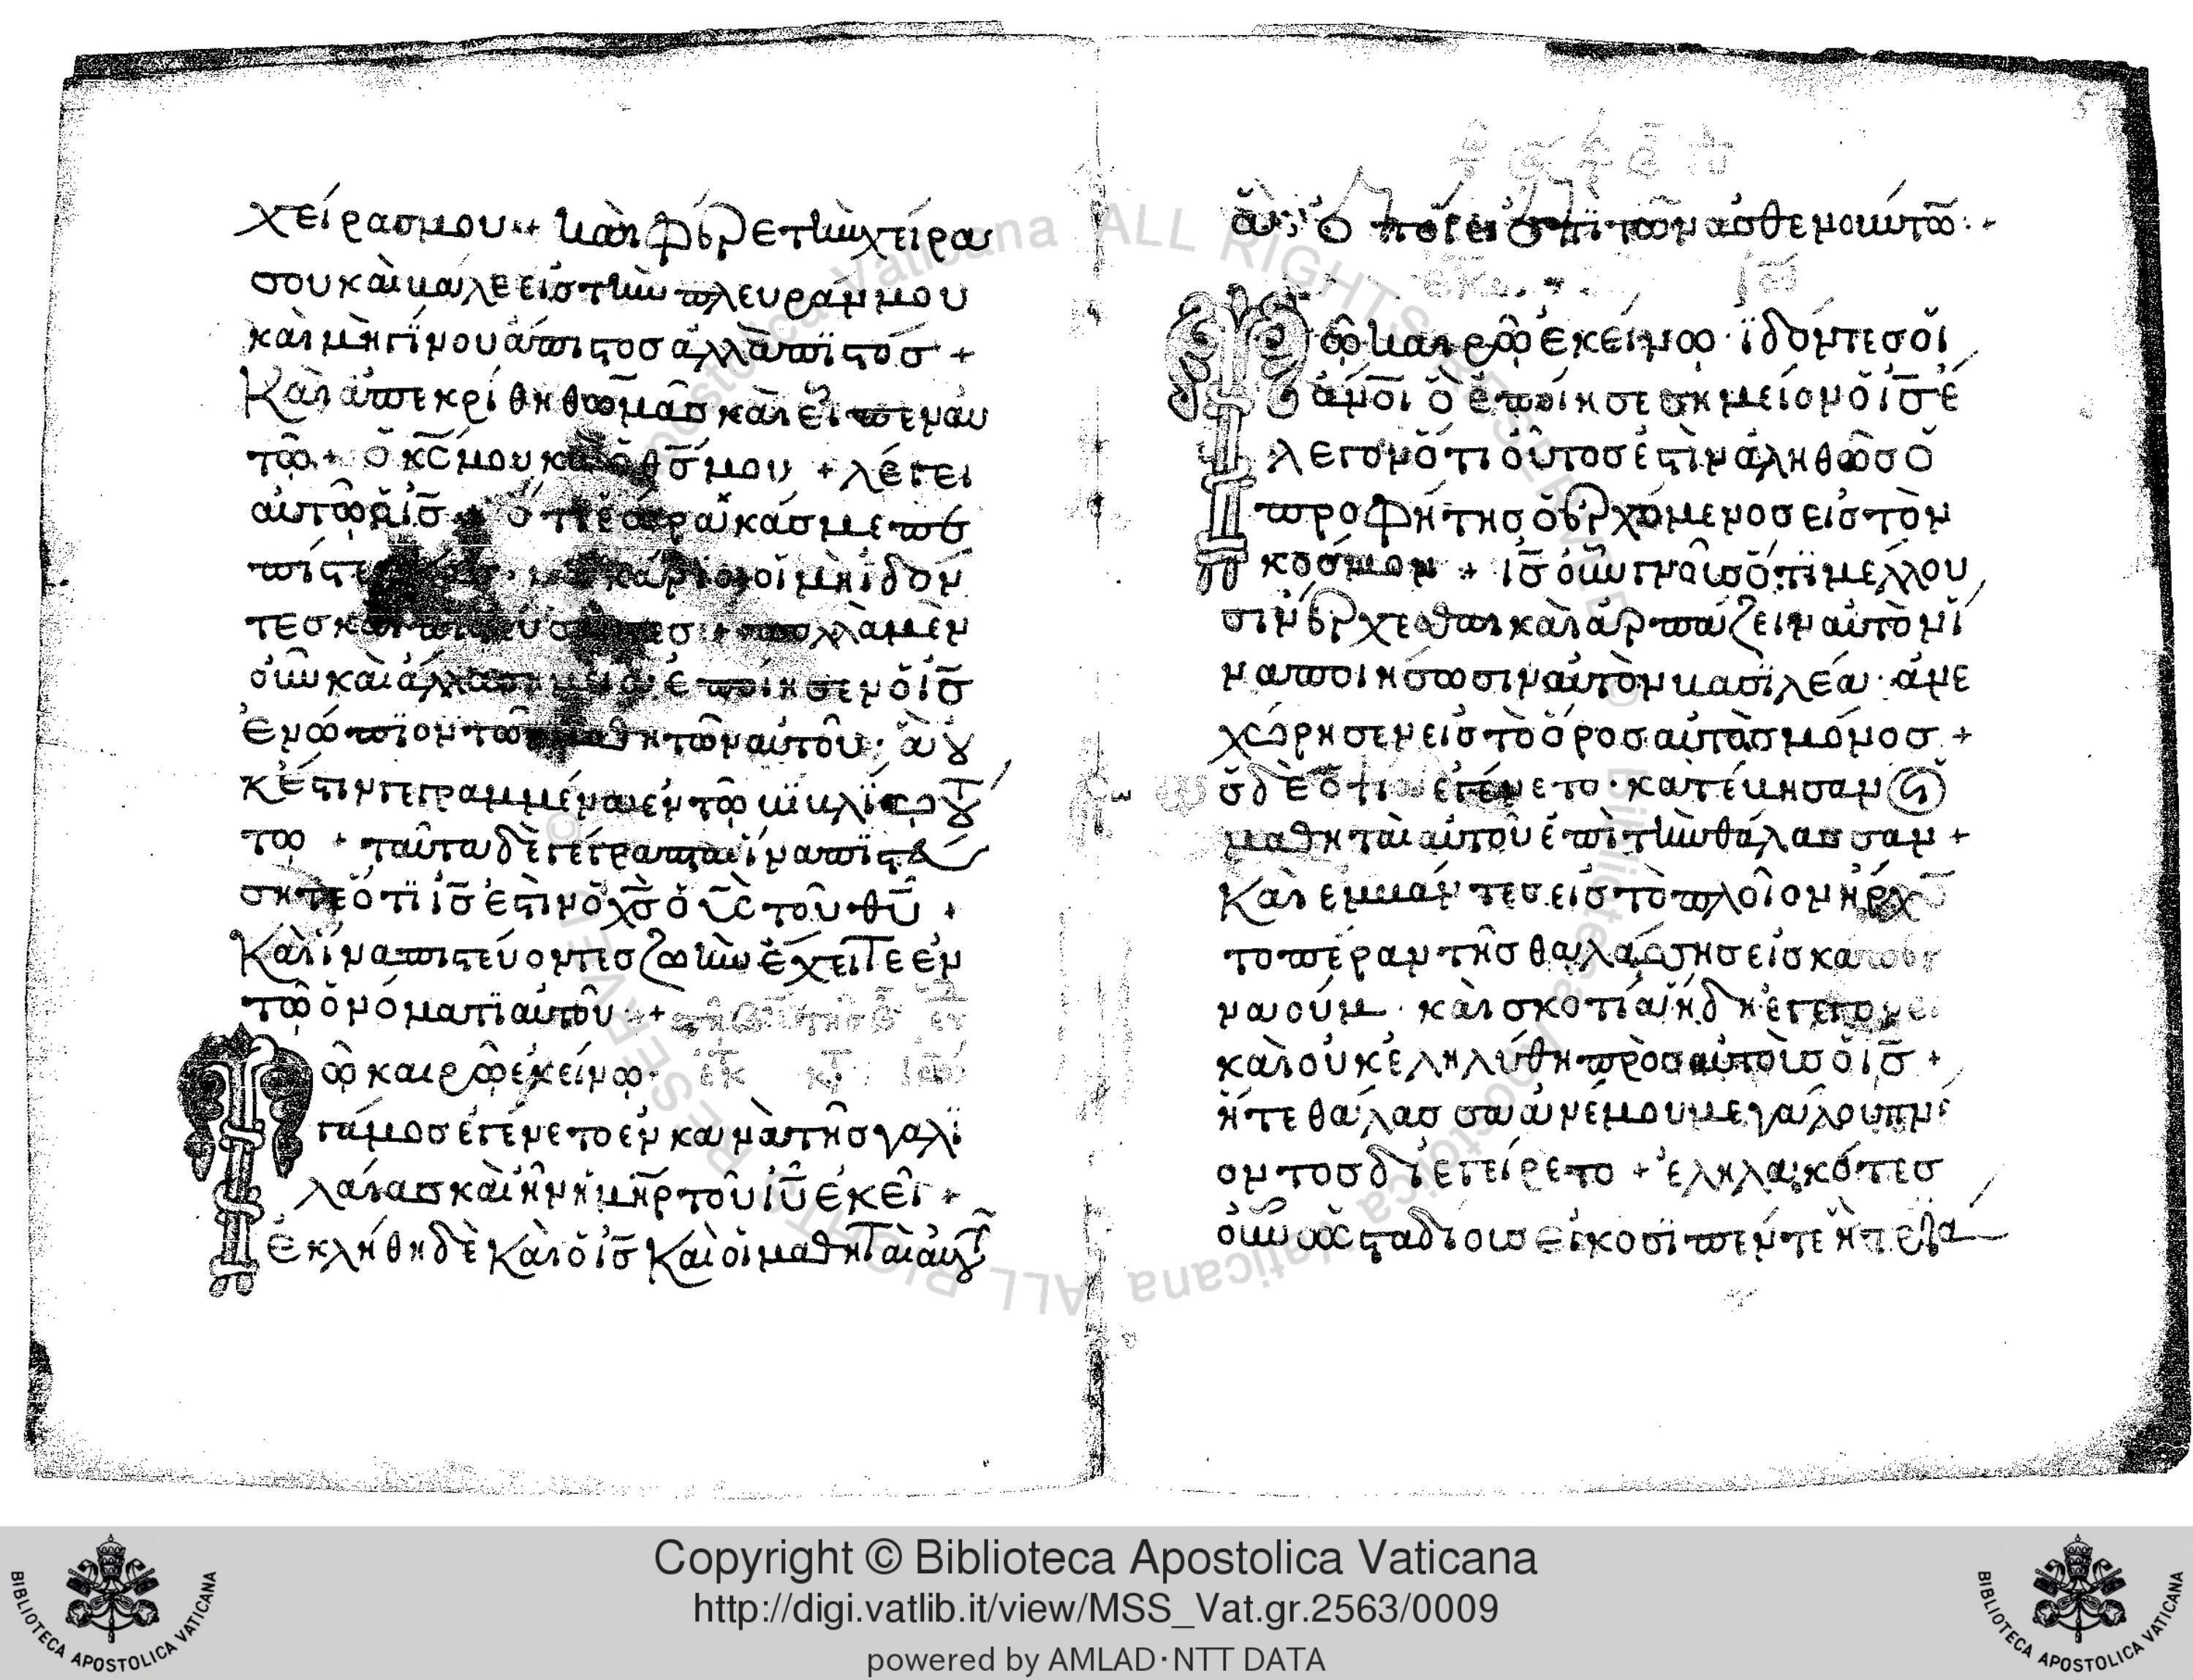 χεῖρας μου·+ καὶ φέρε τὴν χεῖρα
σου καὶ βάλε εἰς τὴν πλευράν μου
καὶ μὴ γίνου ἄπιστος ἀλλὰ πϊστός +
Καὶ ἀπεκρίθη θωμᾶς καὶ εἶπεν αυ
τῶ + ὁ κς μου καὶ ὁ θς μου + λέγει
αὐτῶ ὁ ις ὅτι ἑώρακάς με πε
πίστευκας· μακάριοι οἱ μὴ ἰδόν
τες καὶ πιστεύσαντες + πολλὰ μὲν
οὖν καὶ ἄλλα σημεῖα ἐποίησεν ὁ ις
ἐνώπϊον τῶν μαθητῶν αὐτοῦ· ἃ οὐ
κ ἔστιν γεγραμμένα ἐν τῶ βϊβλίω τού
τω + ταῦτα δὲ γέγραπται ἵνα πϊστεύ
σητε ὅτϊ ις ἐστὶν ὁ χς ὁ υς τοῦ θυ +
Καὶ ἵνα πιστεύοντες ζωὴν ἔχειτε ἐν
τῶ ὀνόματϊ αὐτοῦ +
ῶ καιρῶ ἐκείνω· ἐκ τ ιω
γάμος ἐγένετο ἐν κανὰ τῆς γαλϊ
λαίας καὶ ἦν ἡ μηρ τοῦ ιυ ἐκεῖ +
ἐκλήθη δὲ καὶ ὁ ις καὶ οἱ μαθηταὶ αὐτ
ἃ ἐποίει ἐπὶ τῶν ἀσθενούντω
ῶ καιρῶ ἐκείνω· ἰδόντες οἱ
ἀνοι ὃ ἐποίησε σημεῖον ὁ ις ἔ
λεγον ὅτι οὗτος ἐστὶν ἀληθῶς ὁ
προφήτης ὁ ἐρχόμενος εἰς τὸν
κόσμον + ις οὖν γνοὺς ὅτϊ μέλλου
σιν ἔρχεσθαι καὶ ἁρπάζειν αὐτὸν ἵ
να ποιήσωσιν αὐτὸν βασϊλέα· ἀνε
χώρησεν εἰς τὸ ὄρος αὐτὸς μόνος +
ὀδὲ ἐγένετο· κατέβησαν οἱ
μαθηταὶ αὐτοῦ ἐπὶ τὴν θάλασσαν +
Καὶ ἐμβάντες εἰς τὸ πλοῖον ἤρχ
το πέραν τῆς θαλάσσης εἰς καπερ
ναούμ· καὶ σκοτία ἤδη ἐγεγόνει
καὶ οὐκ ἐληλύθη πρὸς αὐτοὺς ὁ ις +
ἥτε θάλασσα ἀνέμου μεγάλου πνέ
οντος διεγείρετο + ἐληλακότες
οὖν ὡς σταδίους εἴκοσϊ πέντε ἢ τριά
Copyright © Biblioteca Apostolica Vaticana
http://digi.vatlib.it/view/MSS_Vat.gr.2563/0009
powered by AMLAD·NTT DATA
BIBLIOTECA APOSTOLICA VATICANA
BIBLIOTECA APOSTOLICA VATICANA